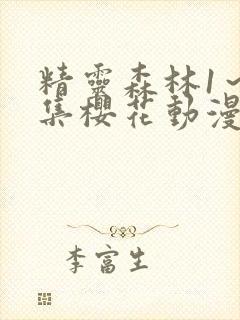 精靈森林1~
集櫻花動漫
李富生